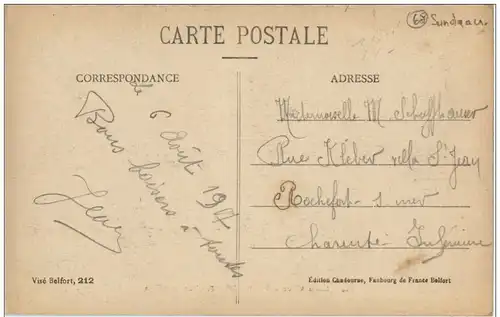 68 Sundgau
CARTE POSTALE
CORRESPONDANCE
ADRESSE
le 6 Août 1917
Bons baisers à toutes
Jean
Mademoiselle M. Schuffhauser
Rue Kléber villa St Jean
Rochefort s mer
Charente Inférieure
Visé Belfort, 212
Edition Chadourne, Faubourg de France Belfort